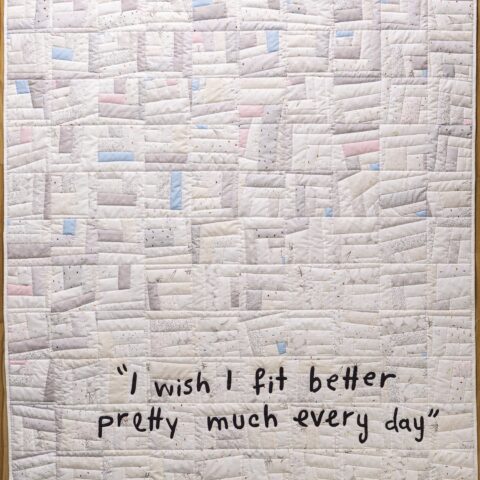 "I wish I fit better
pretty much every day"